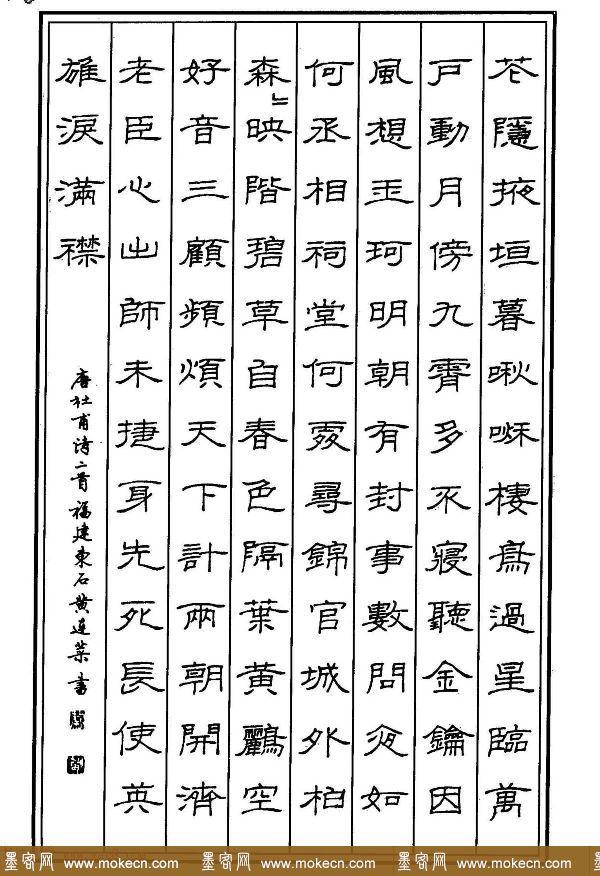 花隱掖垣暮啾啾棲鳥過星臨萬
戶動月傍九霄多不寢聽金鑰因
風想玉珂明朝有封事數問夜如
何丞相祠堂何處尋錦官城外柏
森〻映階碧草自春色隔葉黃鸝空
好音三顧頻煩天下計兩朝開濟
老臣心出師未捷身先死長使英
雄淚滿襟
唐杜甫诗二首 福建東石黄 書
墨客网 www.mokecn.com 墨客网 www.mokecn.com 墨客网 www.mokecn.com